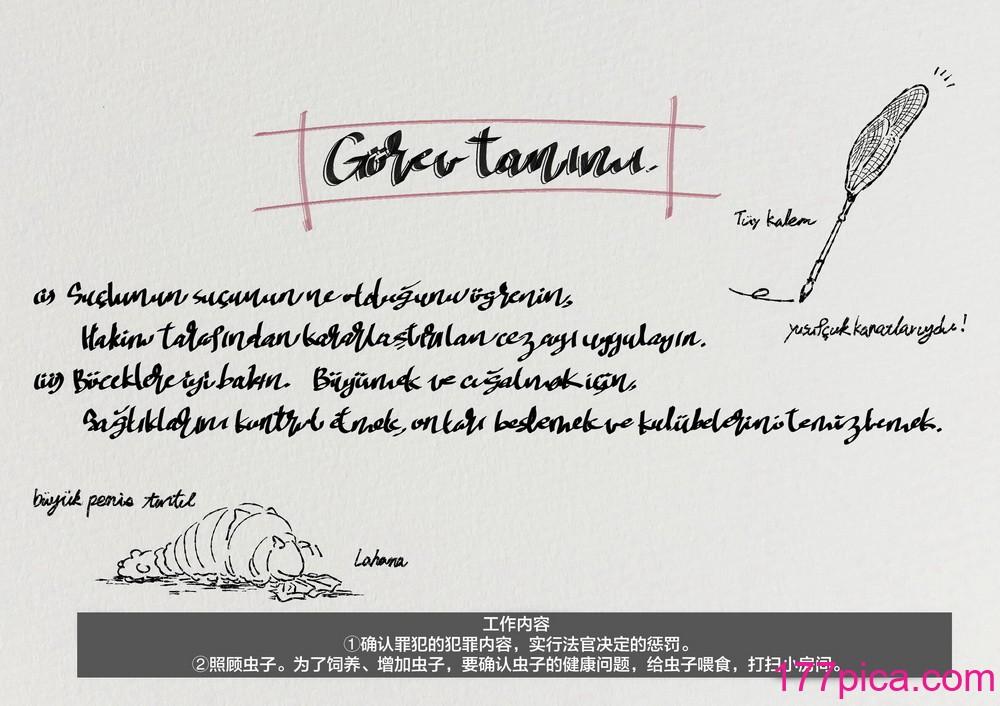 Görev tanımı.
Tüy kalem
yusufçuk kanatlarıydı!
(i) Suçlunun suçunun ne olduğunu öğrenin,
Hakim tarafından kararlaştırılan cezayı uygulayın.
(ii) Böceklere iyi bakın. Büyümek ve çoğalmak için,
Sağlıklarını kontrol etmek, onları beslemek ve kulübelerini temizlemek.
büyük penis tırtıl
Lahana
工作内容
①确认罪犯的犯罪内容，实行法官决定的惩罚。
②照顾虫子。为了饲养、增加虫子，要确认虫子的健康问题，给虫子喂食，打扫小房间。
177pica.com